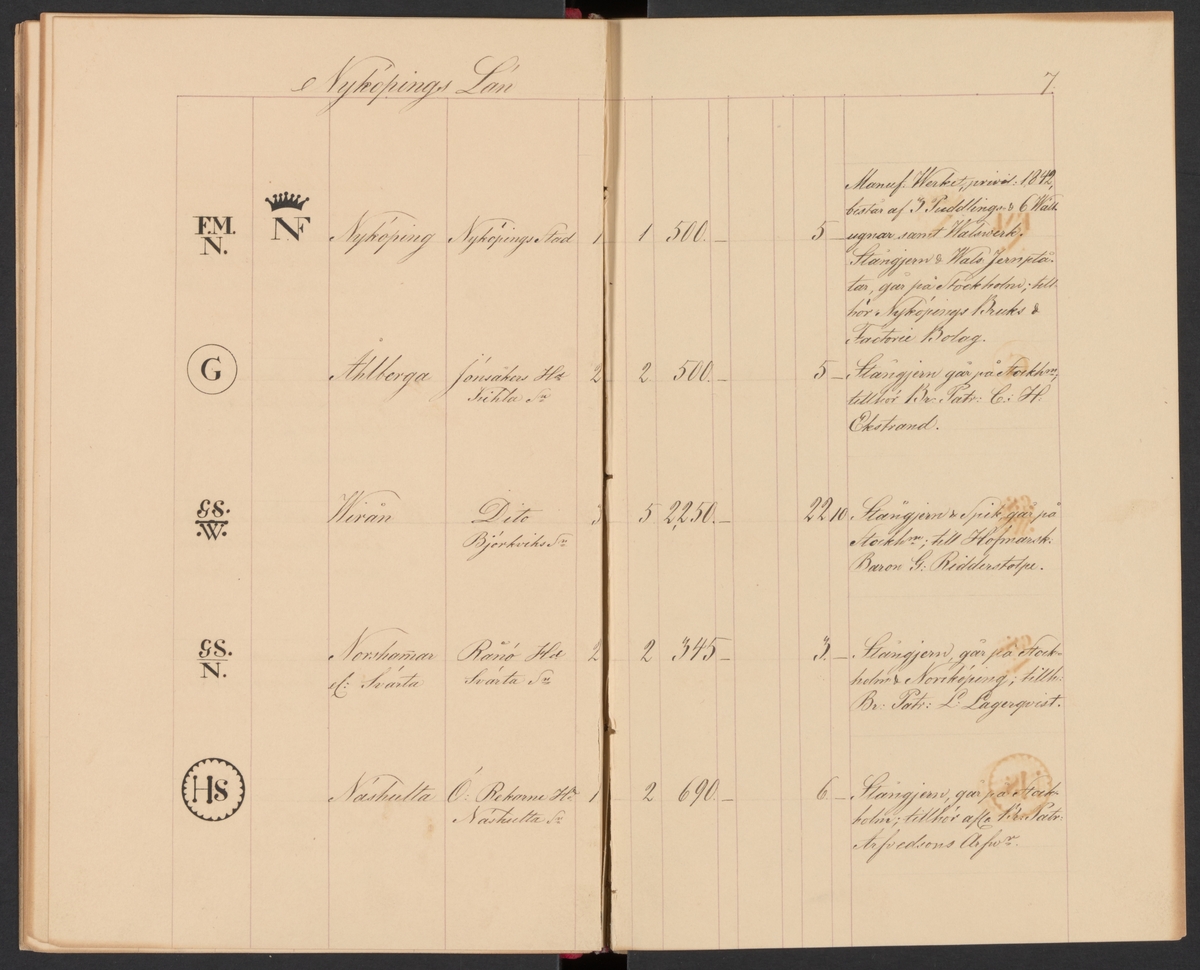 Nyköpings Län
7.
F.M. NF Nyköping Nyköpings Stad 1. 1 500. — 5 —
N.
Manuf. Werket, privil: 1842,
består af 3 Puddlings- & 6 Wäll-
ugnar samt Walswerk.
Stångjern & Wals Jernplå-
tar, går på Stockholm; till-
hör Nyköpings Bruks &
Factorie Bolag.
G Åhlberga Jönåkers Hd 2 2 500. — 5 — Stångjern går på Stockhm;
Kihla Sn tillhör Br: Patr: C: H:
Ekstrand.
GS. Wirån Dito 3 5 2,250. — 22 10 Stångjern & Spik går på
.W. Björkviks Sn Stockhm; till Hofmarsk:
Baron G: Ridderstolpe.
GS. Norshamar Rånö Hd 2 2 345 — 3. — Stångjern, går på Stock-
N. el: Svärta Svärta Sn holm & Norrköping; tillh:
Br: Patr: L: Lagerqvist.
HS Näshulta Ö: Rekarne Hd 1 2 690. — 6 — Stångjern, går på Stock-
Näshulta Sn holm; tillhör afl. Br: Patr:
Arfvedsons Arfvr.